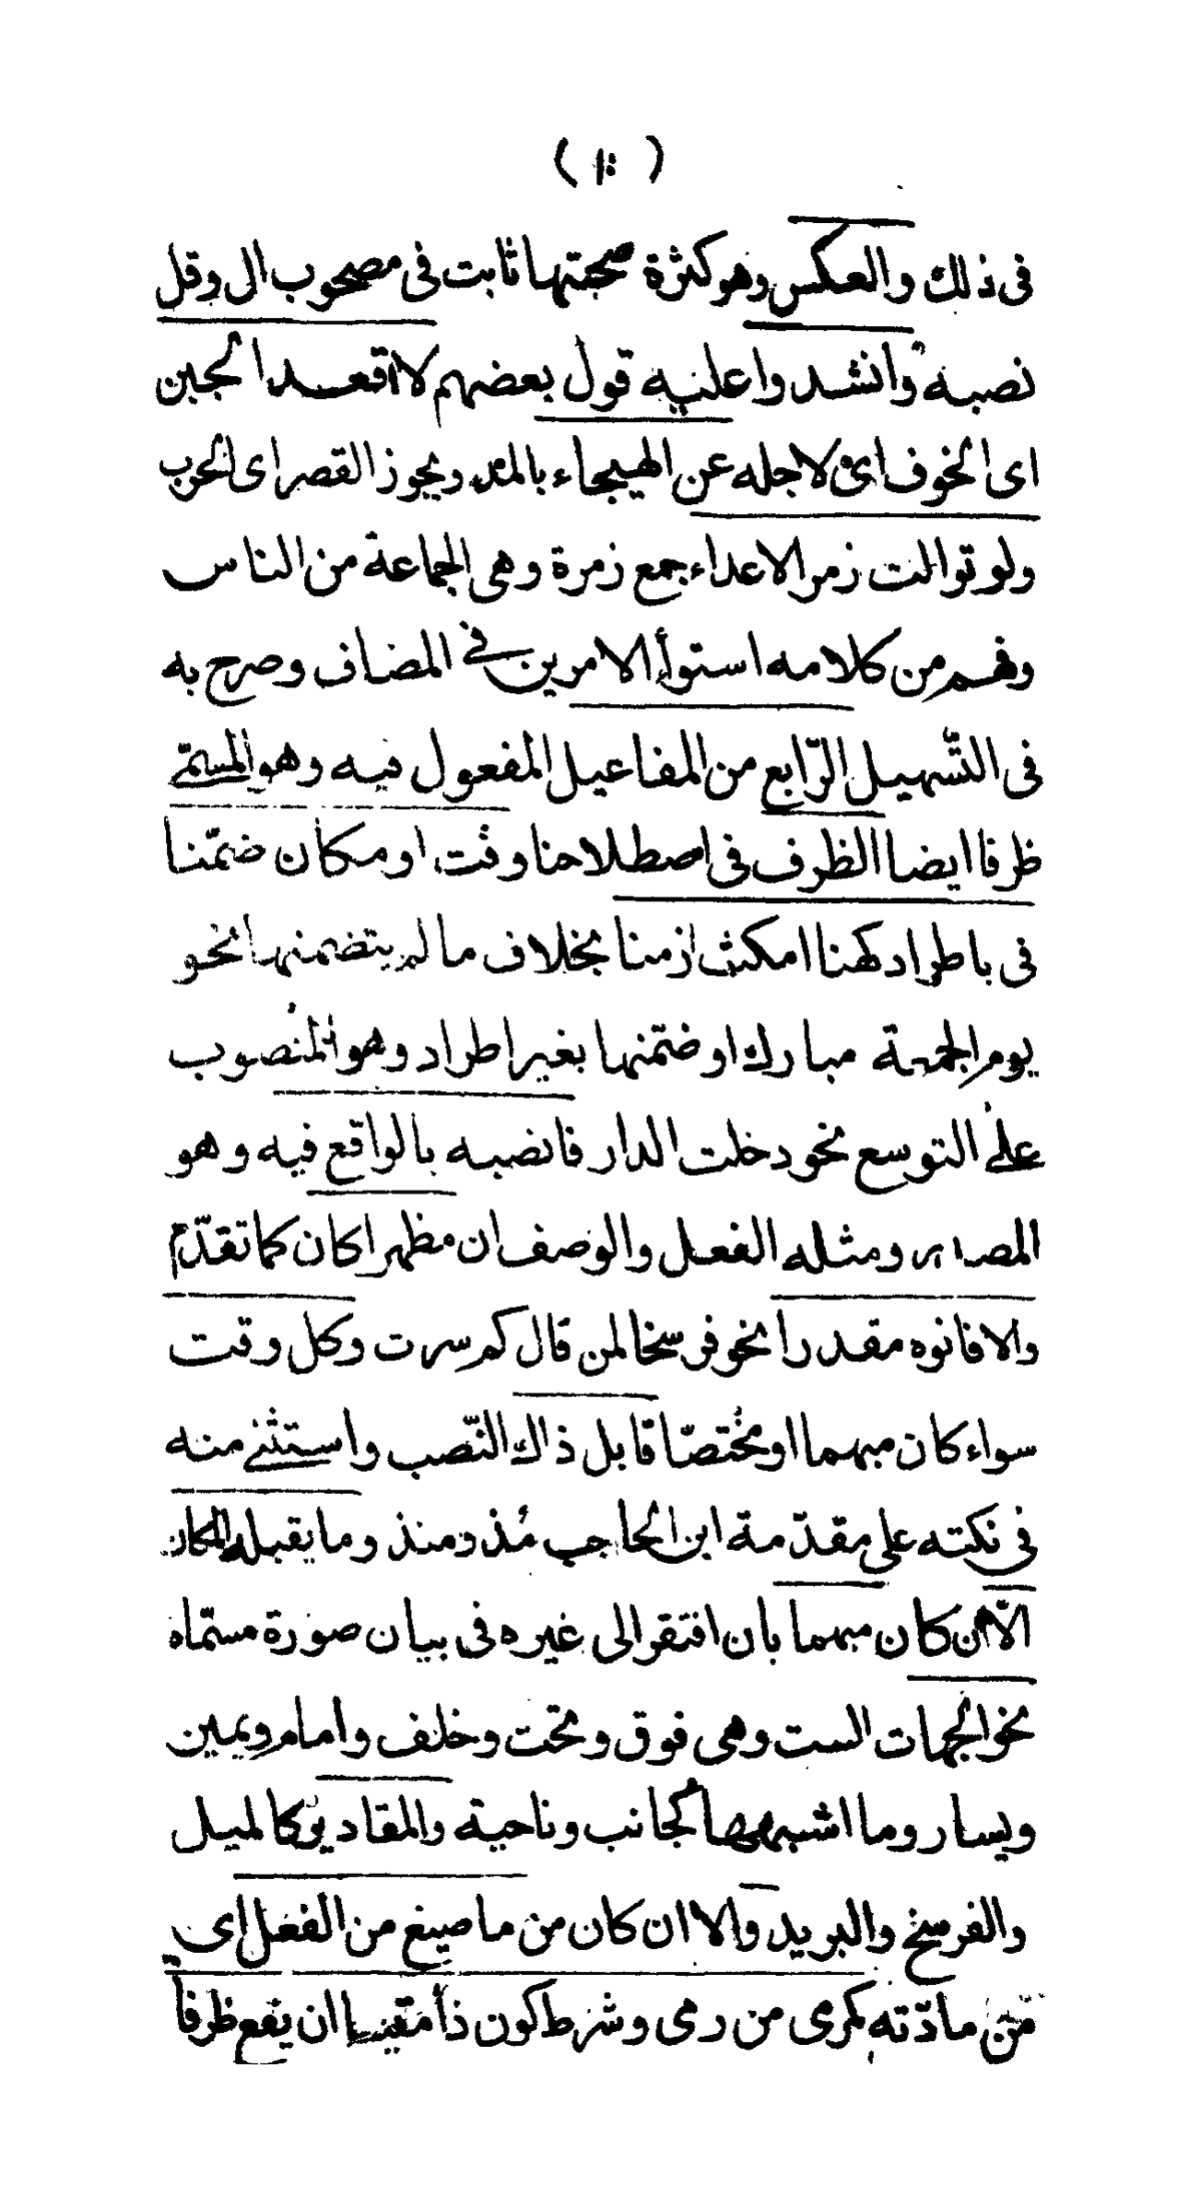 فى ذلك والعكس وهو كثرة صحبتها ثابت فى مصحوب ال وقل
نصبه وانشد وا عليه قول بعضهم لا اقعد الجبن
اى الخوف اى لاجله عن الهيجاء بالمد ويجوز القصر اى الحرب
ولو توالت زمر الاعداء جمع زمرة وهى الجماعة من الناس
وفهم من كلامه استواء الامرين فى المضاف وصرح به
فى التّسهيل الرّابع من المفاعيل المفعول فيه وهو المسمّى
ظرفا ايضا الظرف فى اصطلاحنا وقت او مكان ضمّنا
فى باطراد كهنا امكث ازمنا بخلاف ما لم يتضمنها نحو
يوم الجمعة مبارك او ضمّنها بغير اطراد وهو المنصوب
على التوسع نحو دخلت الدار فانصبه بالواقع فيه وهو
المصدر ومثله الفعل والوصف ان مظهرا كان كما تقدّم
والا فانوه مقدرا نحو فرسخا لمن قال كم سرت وكل وقت
سواء كان مبهما او مختصّا قابل ذاك النّصب واستثنى منه
فى نكته على مقدّمة ابن الحاجب مُذ ومنذ وما يقبله المكان
الّا ان كان مبهما بان افتقر الى غيره فى بيان صورة مسمّاه
نحو الجهات الست وهى فوق وتحت وخلف وامام ويمين
ويسار وما اشبهها كجانب وناحية والمقادير كالميل
والفرسخ والبريد والا ان كان من ما صيغ من الفعل اى
من مادّته كمرمى من رمى وشرط كون ذا مقيسا ان يقع ظرفا